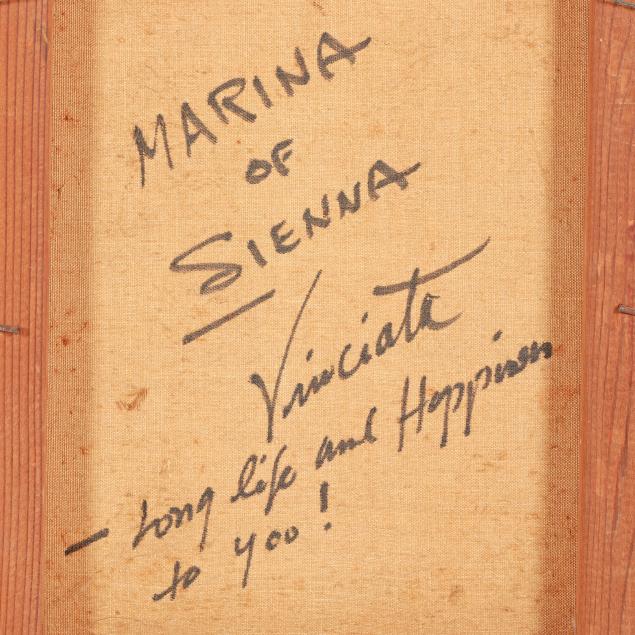 MARINA
OF
SIENNA
Vinciata
- Long life and Happiness
to you!